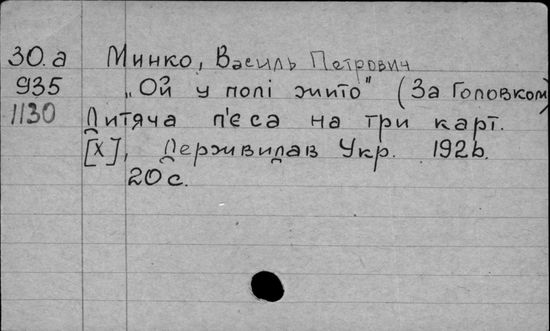 30.а Минко, Василь Петрович
935 „Ой у полі жито" (За Головком)
1130 Дитяча п'єса на три карт.
[Х], Держвидав Укр. 1926.
20 с.